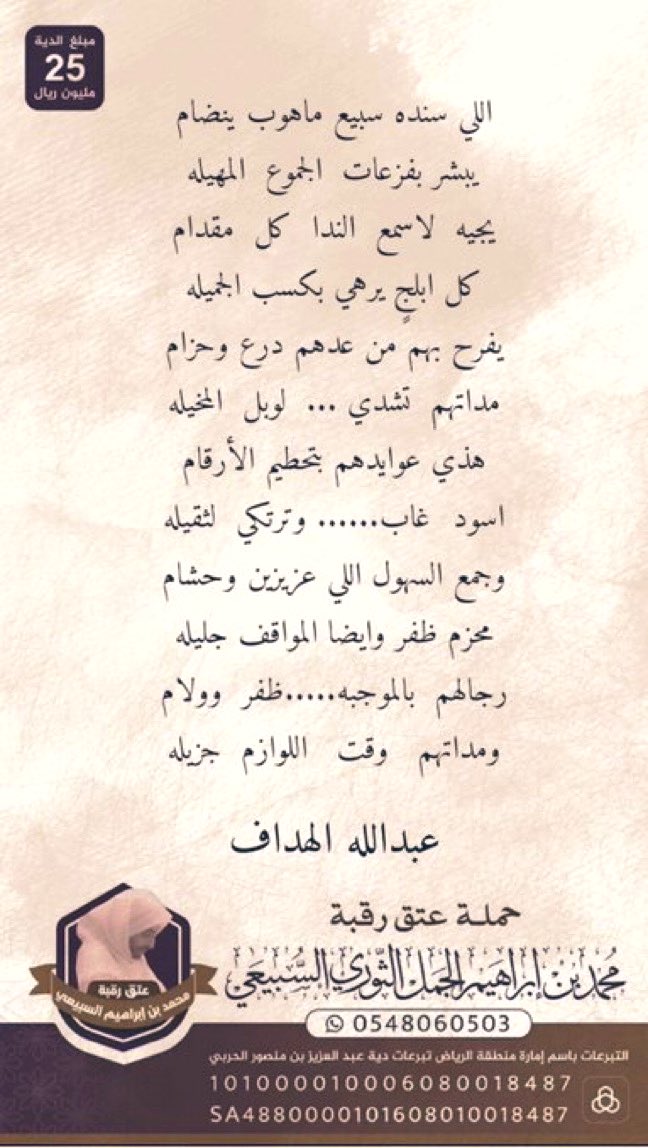 مبلغ الدية
25
مليون ريال
اللي سنده سبيع ماهوب ينضام
يبشر بفزعات الجموع المهيله
يجيه لاسمع الندا كل مقدام
كل ابلجٍ يرهي بكسب الجميله
يفرح بهم من عدهم درع وحزام
مداتهم تشدي ... لوبل المخيله
هذي عوايدهم بتحطيم الأرقام
اسود غاب...... وترتكي لثقيله
وجمع السهول اللي عزيزين وحشام
محزم ظفر وايضا المواقف جليله
رجالهم بالموجبه.....ظفر وولام
ومداتهم وقت اللوازم جزيله
عبدالله الهداف
حملة عتق رقبة
محمد بن إبراهيم الجمل الثوري السبيعي
عتق رقبة
محمد بن إبراهيم السبيعي
0548060503
التبرعات باسم إمارة منطقة الرياض تبرعات دية عبد العزيز بن منصور الحربي
101000010006080018487
SA4880000101608010018487